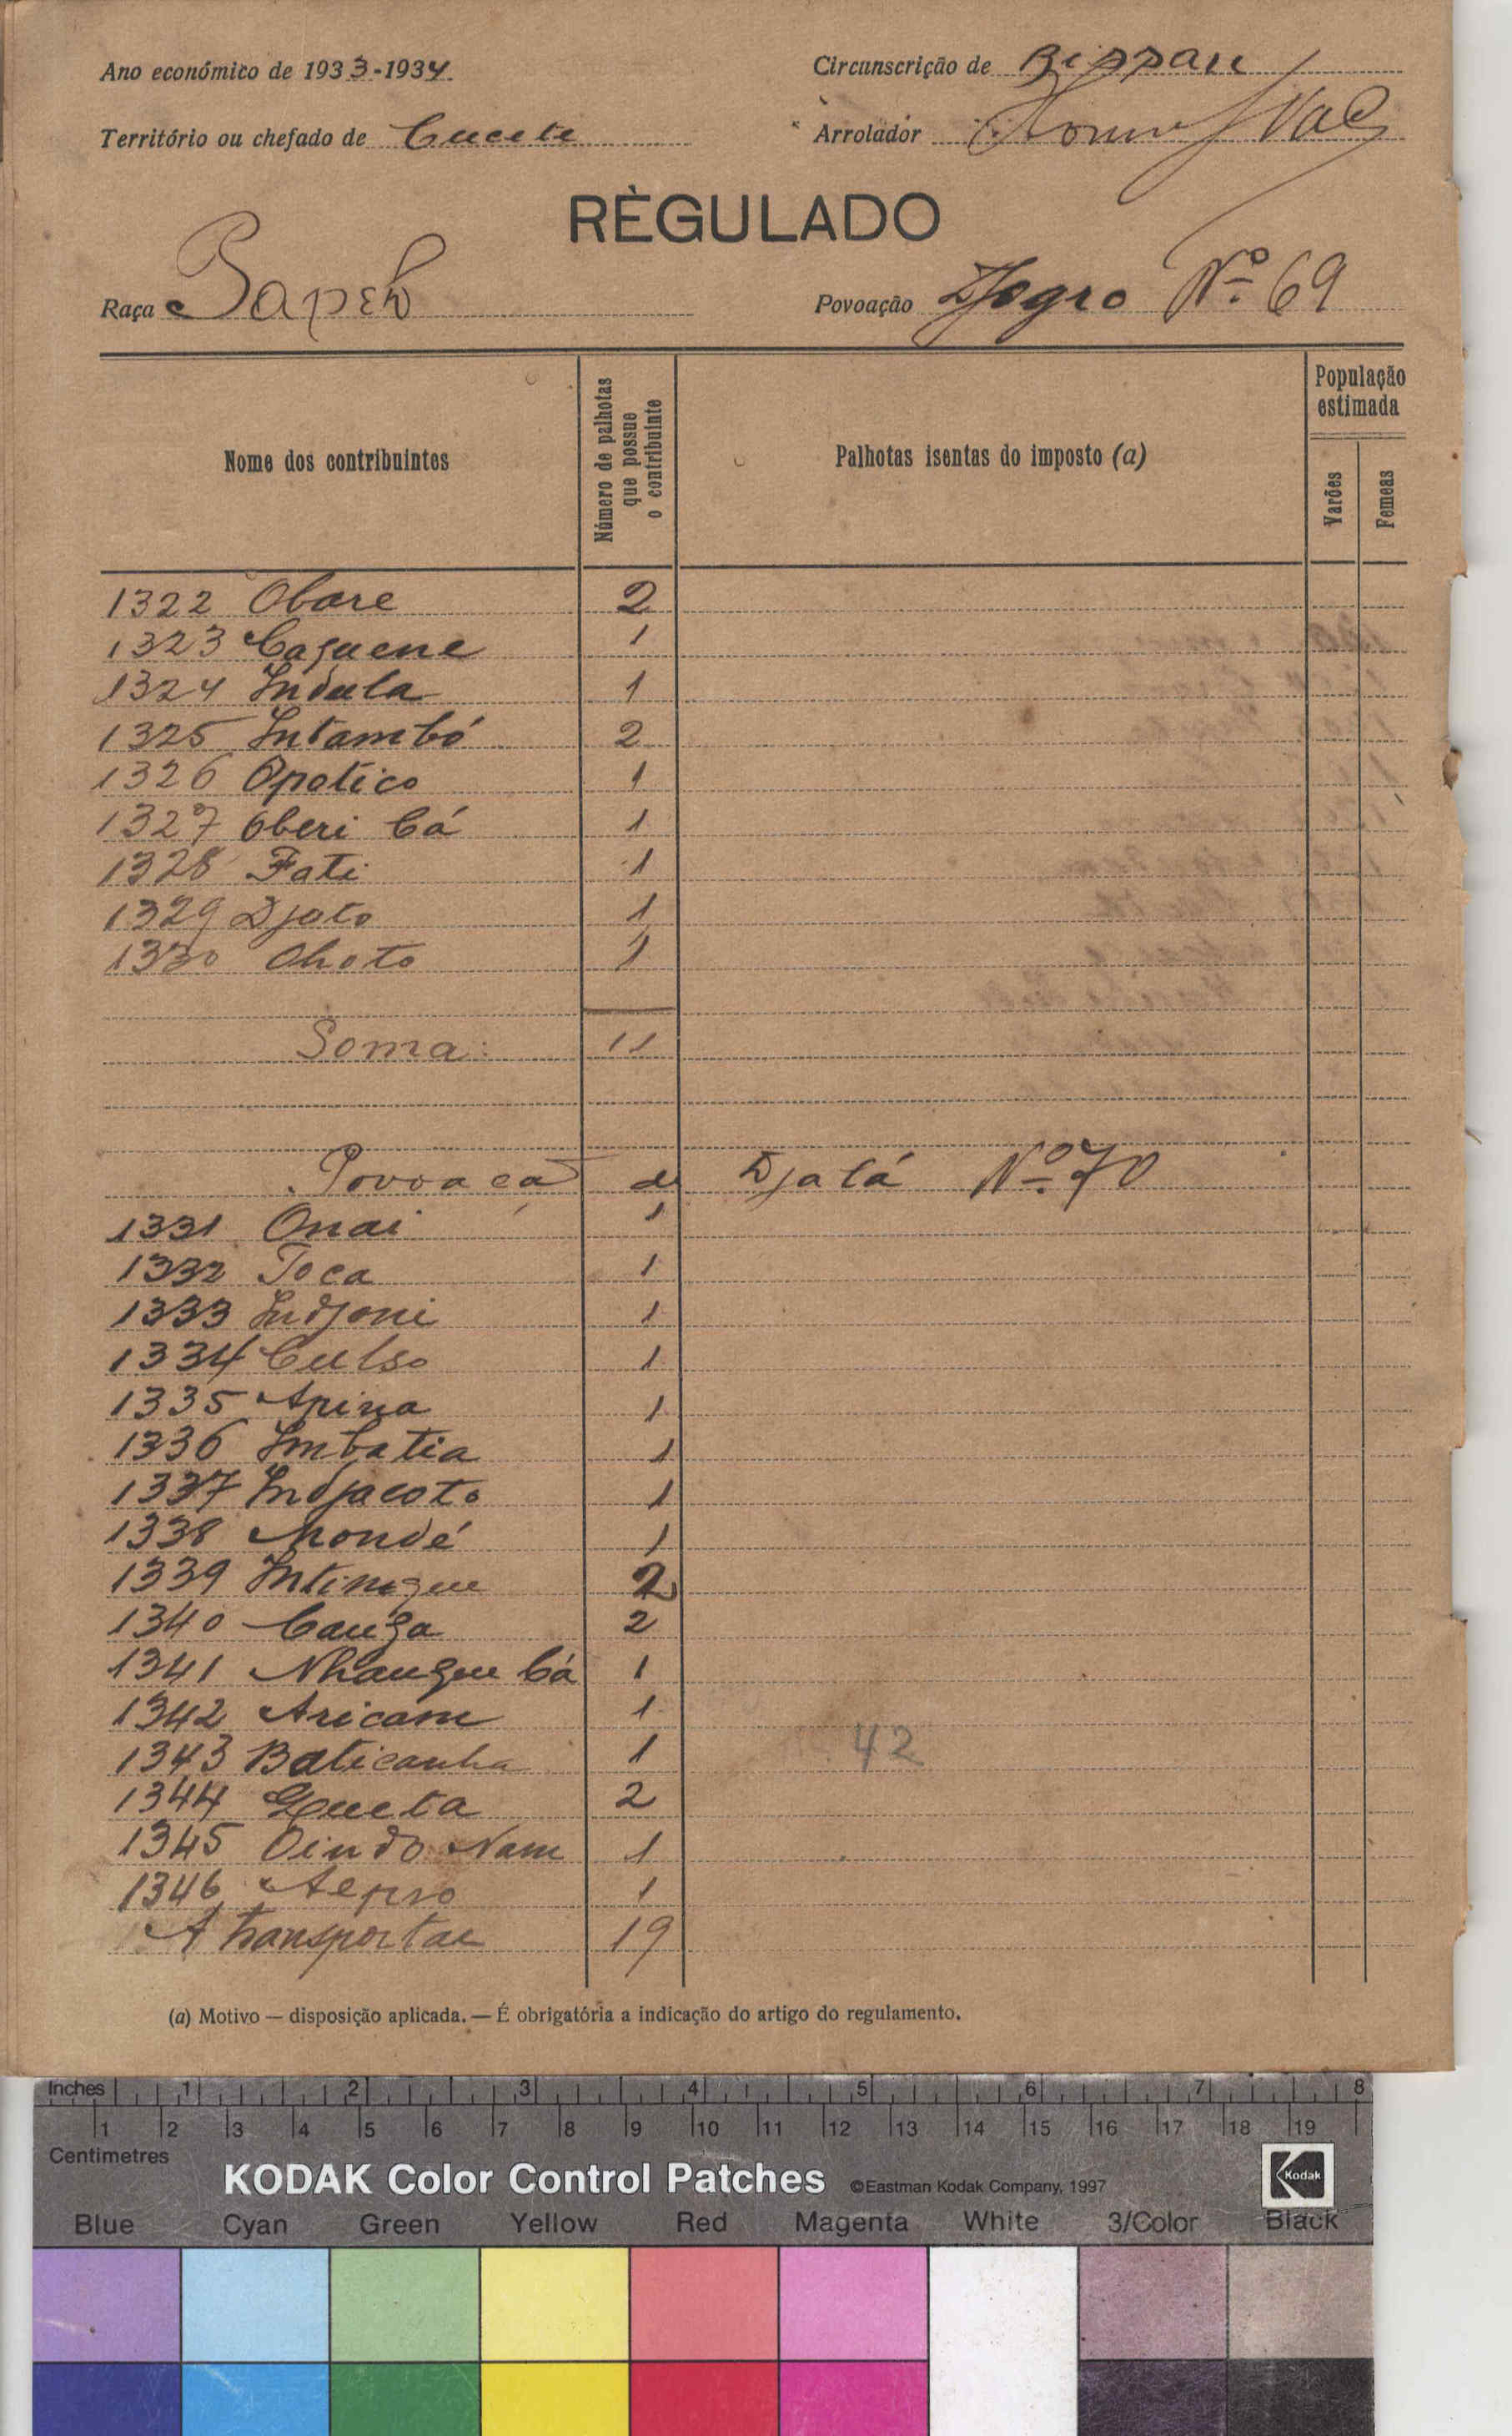 Ano económico de 1933-1934
Circunscrição de Bissau
Território ou chefado de Cucete
Arrolador
RÈGULADO
Raça Papel
Povoação Djogro Nº 69
Nome dos contribuintes
Número de palhotas que possue o contribuinte
Palhotas isentas do imposto (a)
População estimada
Varões
Femeas
1322 Obare 2
1323 Caguene 1
1324 Indula 1
1325 Intambó 2
1326 Opatico 1
1327 Oberi Cá 1
1328 Fati 1
1329 Djato 1
1330 Choto 1
Soma: 11
Povoaçã de Djalá Nº 70
1331 Onai 1
1332 Toca 1
1333 Indjoni 1
1334 Culso 1
1335 Apina 1
1336 Imbatia 1
1337 Indjacoto 1
1338 Mondé 1
1339 Intingue 2
1340 Canga 2
1341 Nhangue Cá 1
1342 Aricam 1
1343 Baticanha 1
42
1344 Queta 2
1345 Oindo Nam 1
1346 1
A transportar 19
(a) Motivo — disposição aplicada. — É obrigatória a indicação do artigo do regulamento.
Inches 1 2 3 4 5 6 7 8
1 2 3 4 5 6 7 8 9 10 11 12 13 14 15 16 17 18 19
Centimetres
KODAK Color Control Patches ©Eastman Kodak Company, 1997 Kodak
Blue Cyan Green Yellow Red Magenta White 3/Color Black